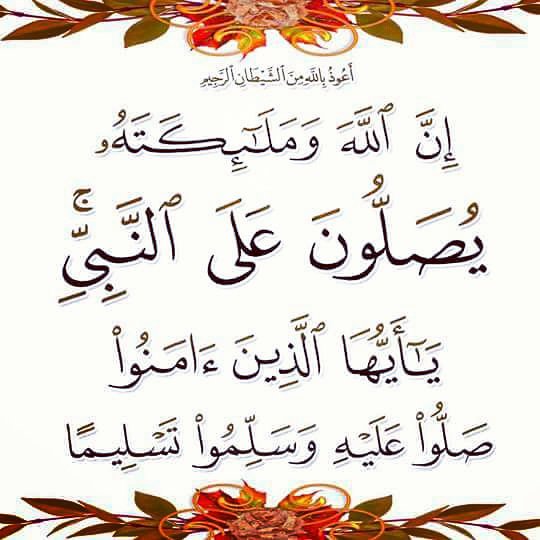 أَعُوذُ بِاللَّهِ مِنَ ٱلشَّيْطَانِ ٱلرَّجِيمِ
إِنَّ ٱللَّهَ وَمَلَـٰٓئِكَتَهُۥ
يُصَلُّونَ عَلَى ٱلنَّبِىِّۚ
يَـٰٓأَيُّهَا ٱلَّذِينَ ءَامَنُوا۟
صَلُّوا۟ عَلَيْهِ وَسَلِّمُوا۟ تَسْلِيمًا